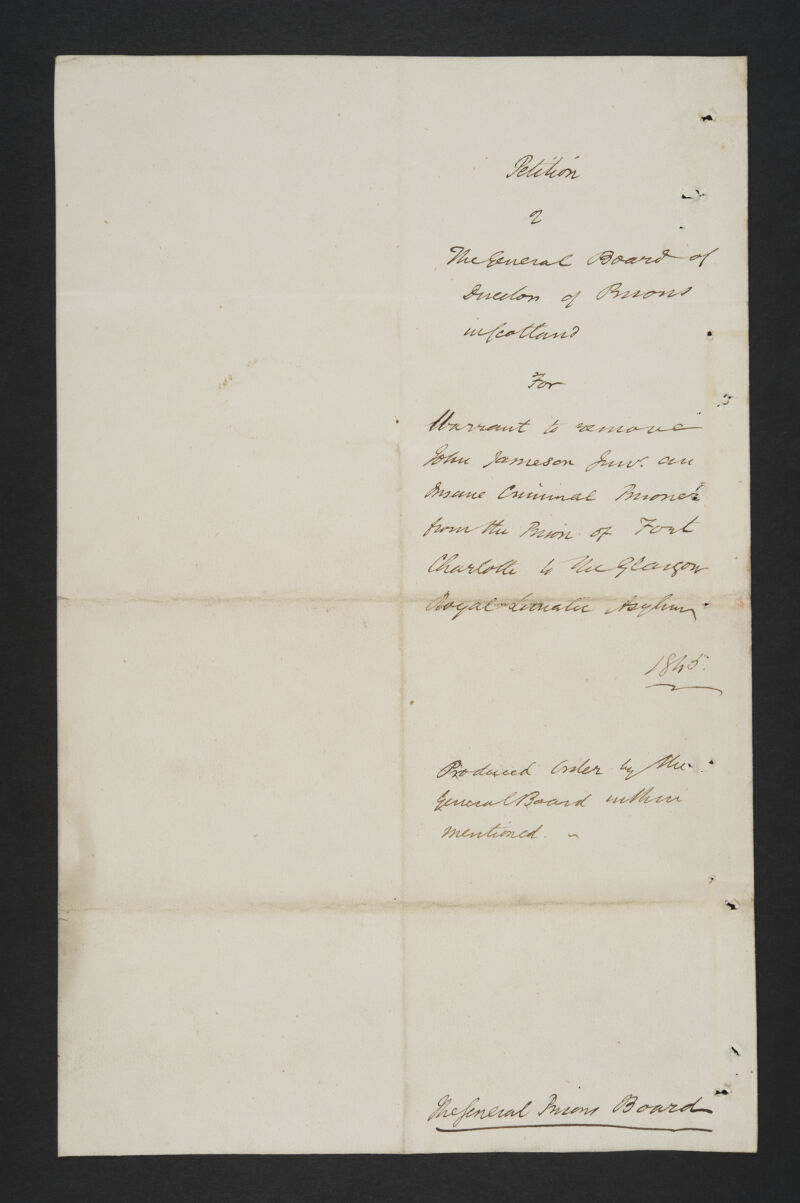 Petition
of
The General Board of
Directors of Prisons
in Scotland
For
Warrant to remove
John Jameson Junr. an
Insane Criminal Prisoner
from the Prison of Fort
Charlotte to the Glasgow
Royal Lunatic Asylum
1845.
Produced Order by the
General Board within
mentioned.
The General Prisons Board